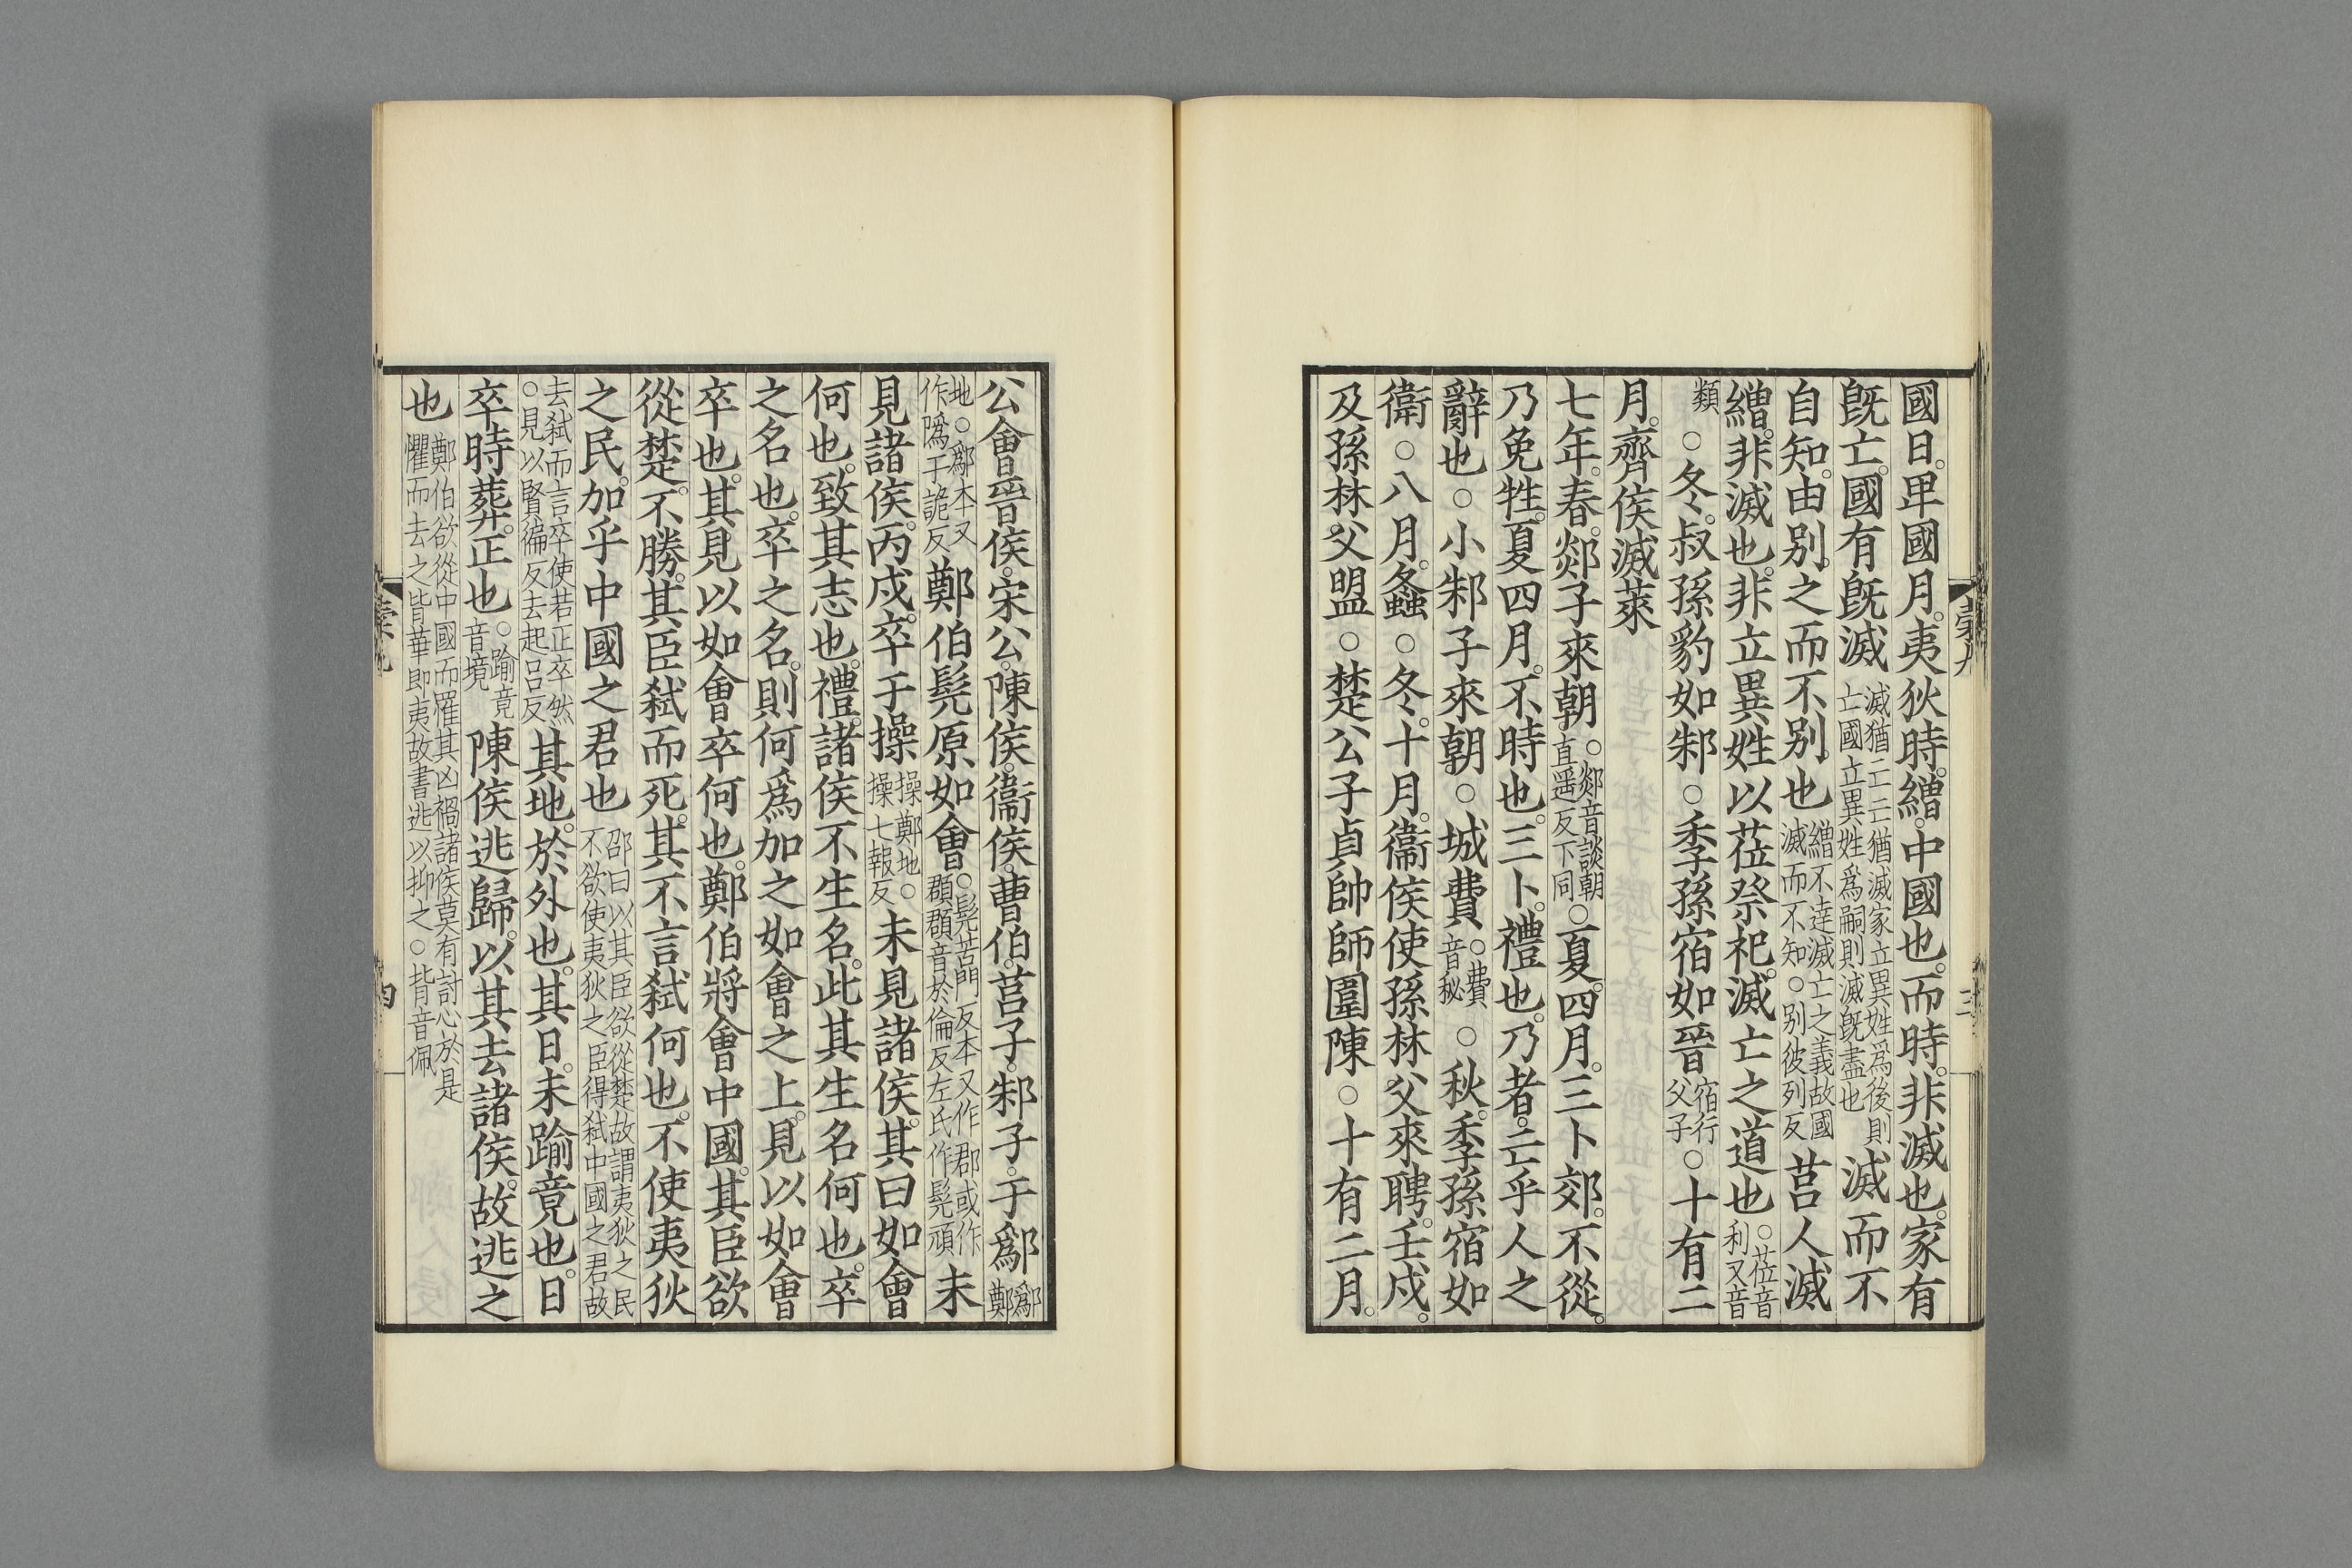 國日。卑國月。夷狄時。繒。中國也。而時。非滅也。家有
旣亡。國有旣滅滅猶亡亡猶滅家立異姓爲後則亡國立異姓爲嗣則滅旣盡也滅而不
自知。由別。之而不別也繒不達滅亡之義故國滅而不知○別彼列反莒人滅
繒。非滅也。非立異姓以莅祭祀。滅亡之道也○莅音利又音
類○冬。叔孫豹如邾○季孫宿如晉宿行父子○十有二
月。齊侯滅萊
七年。春。郯子來朝○郯音談朝直遥反下同○夏。四月。三卜郊。不從。
乃免牲。夏四月。不時也。三卜。禮也。乃者。亡乎人之
辭也○小邾子來朝○城費○費音秘○秋。季孫宿如
衛○八月。螽○冬。十月。衞侯使孫林父來聘。壬戌。
及孫林父盟○楚公子貞帥師圍陳○十有二月。
公會晉侯。宋公。陳侯。衞侯。曹伯。莒子。邾子。于鄬鄬鄭
地○鄬本又作隝于詭反鄭伯髡原如會○髡苦門反本又作郡或作頵頵音於倫反左氏作髡頑未
見諸侯。丙戌。卒于操操鄭地○操七報反未見諸侯。其曰如會
何也。致其志也。禮。諸侯不生名。此其生名何也。卒
之名也。卒之名。則何爲加之如會之上。見以如會
卒也。其見以如會卒何也。鄭伯將會中國。其臣欲
從楚。不勝。其臣弑而死。其不言弑何也。不使夷狄
之民。加乎中國之君也邵曰以其臣欲從楚故謂夷狄之民不欲使夷狄之臣得弑中國之君故
去弑而言卒使若正卒然○見以賢徧反去起呂反其地。於外也。其日。未踰竟也。日
卒時葬。正也○踰竟音境陳侯逃歸。以其去諸侯。故逃之
也鄭伯欲從中國而罹其凶禍諸侯莫有討心於是懼而去之背華即夷故書逃以抑之○背音佩